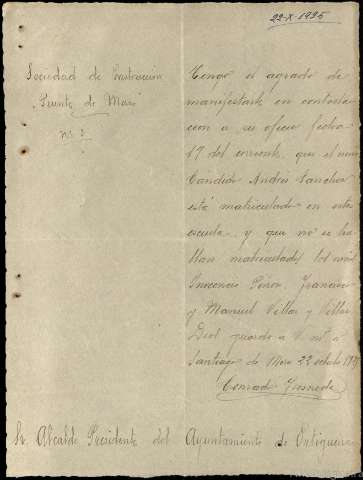 22-X-1925
Sociedad de Instrucción
"Puente de Mera"
nº 2
Tengo el agrado de
manifestarle en contesta
cion a su oficio fecha
19 del corriente, que el niño
Candido Andrés Sanchez
está matriculado en esta
escuela, y que no se ha
llan matriculados los niños
Inocencio Francisco
y Manuel Villar y Villar
Dios guarde a V. mº aº
Santiago de Mera 22 octubre 1925
Conrado
Sr. Alcalde Presidente del Ayuntamiento de Ortigueira